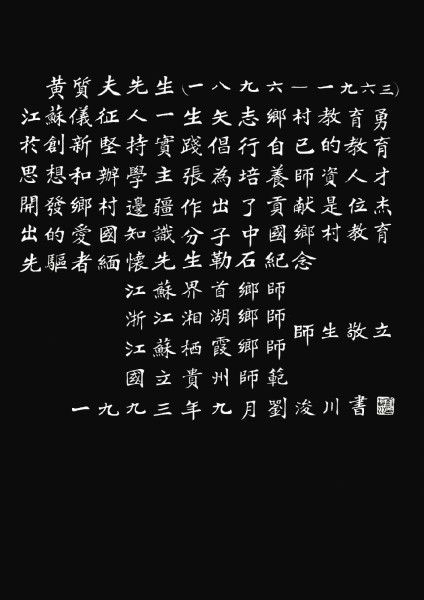 黄質夫先生(一八九六—一九六三)
江蘇儀征人一生矢志鄉村教育勇
於創新堅持實踐倡行自已的教育
思想和辦學主張為培養師資人才
開發鄉村邊疆作出了貢献是位杰
出的愛國知識分子中國鄉村教育
先驅者緬懷先生勒石紀念
江蘇界首鄉師
浙江湘湖鄉師
師生敬立
江蘇栖霞鄉師
國立貴州師範
一九九三年九月劉浚川書